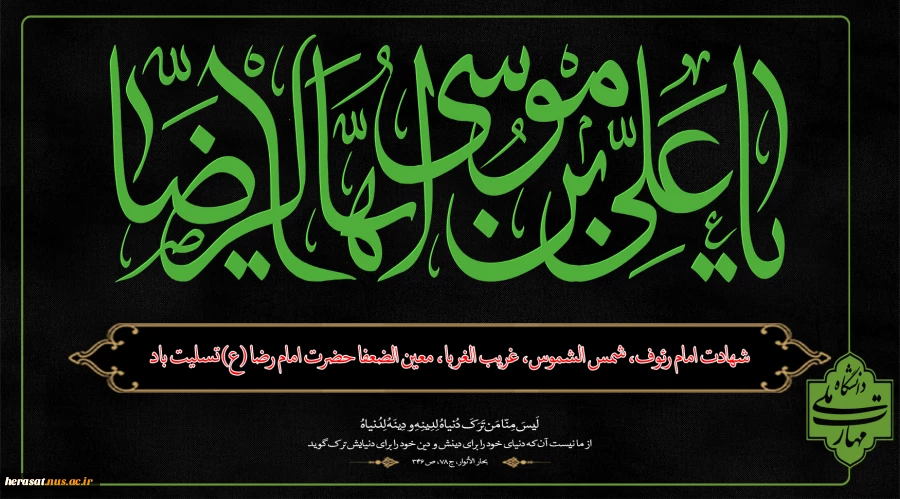 یا عَلِیِّ بْنِ مُوسَی ایُّهَا الرِّضَا
شهادت امام رئوف، شمس الشموس، غریب الغربا، معین الضعفا حضرت امام رضا (ع) تسلیت باد
لَیسَ مِنّا مَن تَرَکَ دُنیاهُ لِدِینِهِ و دِینَهُ لِدُنیاهُ
از ما نیست آن که دنیای خود را برای دینش و دین خود را برای دنیایش ترک گوید
بحار الأنوار، ج ۷۸، ص ۳۴۶
دانشگاه ملی مهارت
herasat.nus.ac.ir